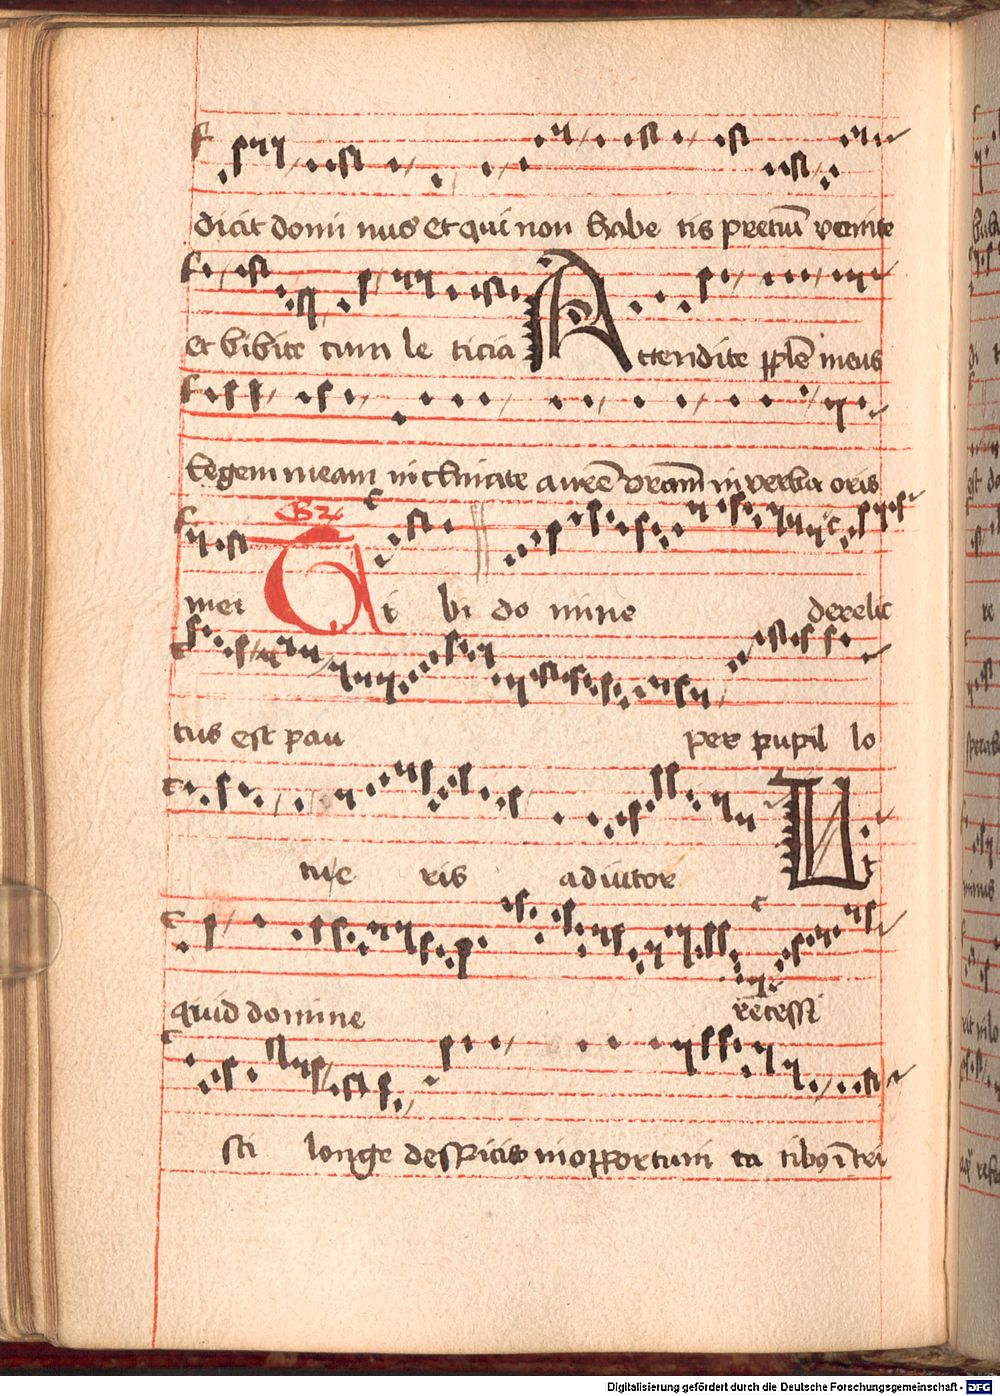 dicit domi nus et qui non habe tis pretiū venite
et bibite cum le ticia Attendite pple meus
legem meam inclinate aurē vrām in verba oris
mei Gr Ti bi do mine derelic
tus est pau per pupil lo
tu e ris adiutor Ut
quid domine recessi
sti longe despicis in opportuni ta tibꝯ ī tri
Digitalisierung gefördert durch die Deutsche Forschungsgemeinschaft - DFG